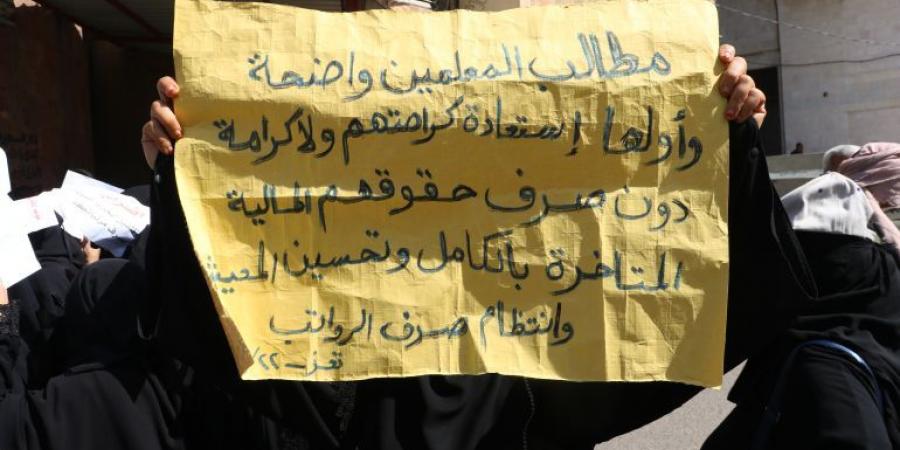 مطالب المعلمين واضحة
وأولها إستعادة كرامتهم ولا كرامة
دون صرف حقوقهم المالية
المتاخرة بالكامل وتحسين المعيش
وانتظام صرف الرواتب
تعز - ٢٢/